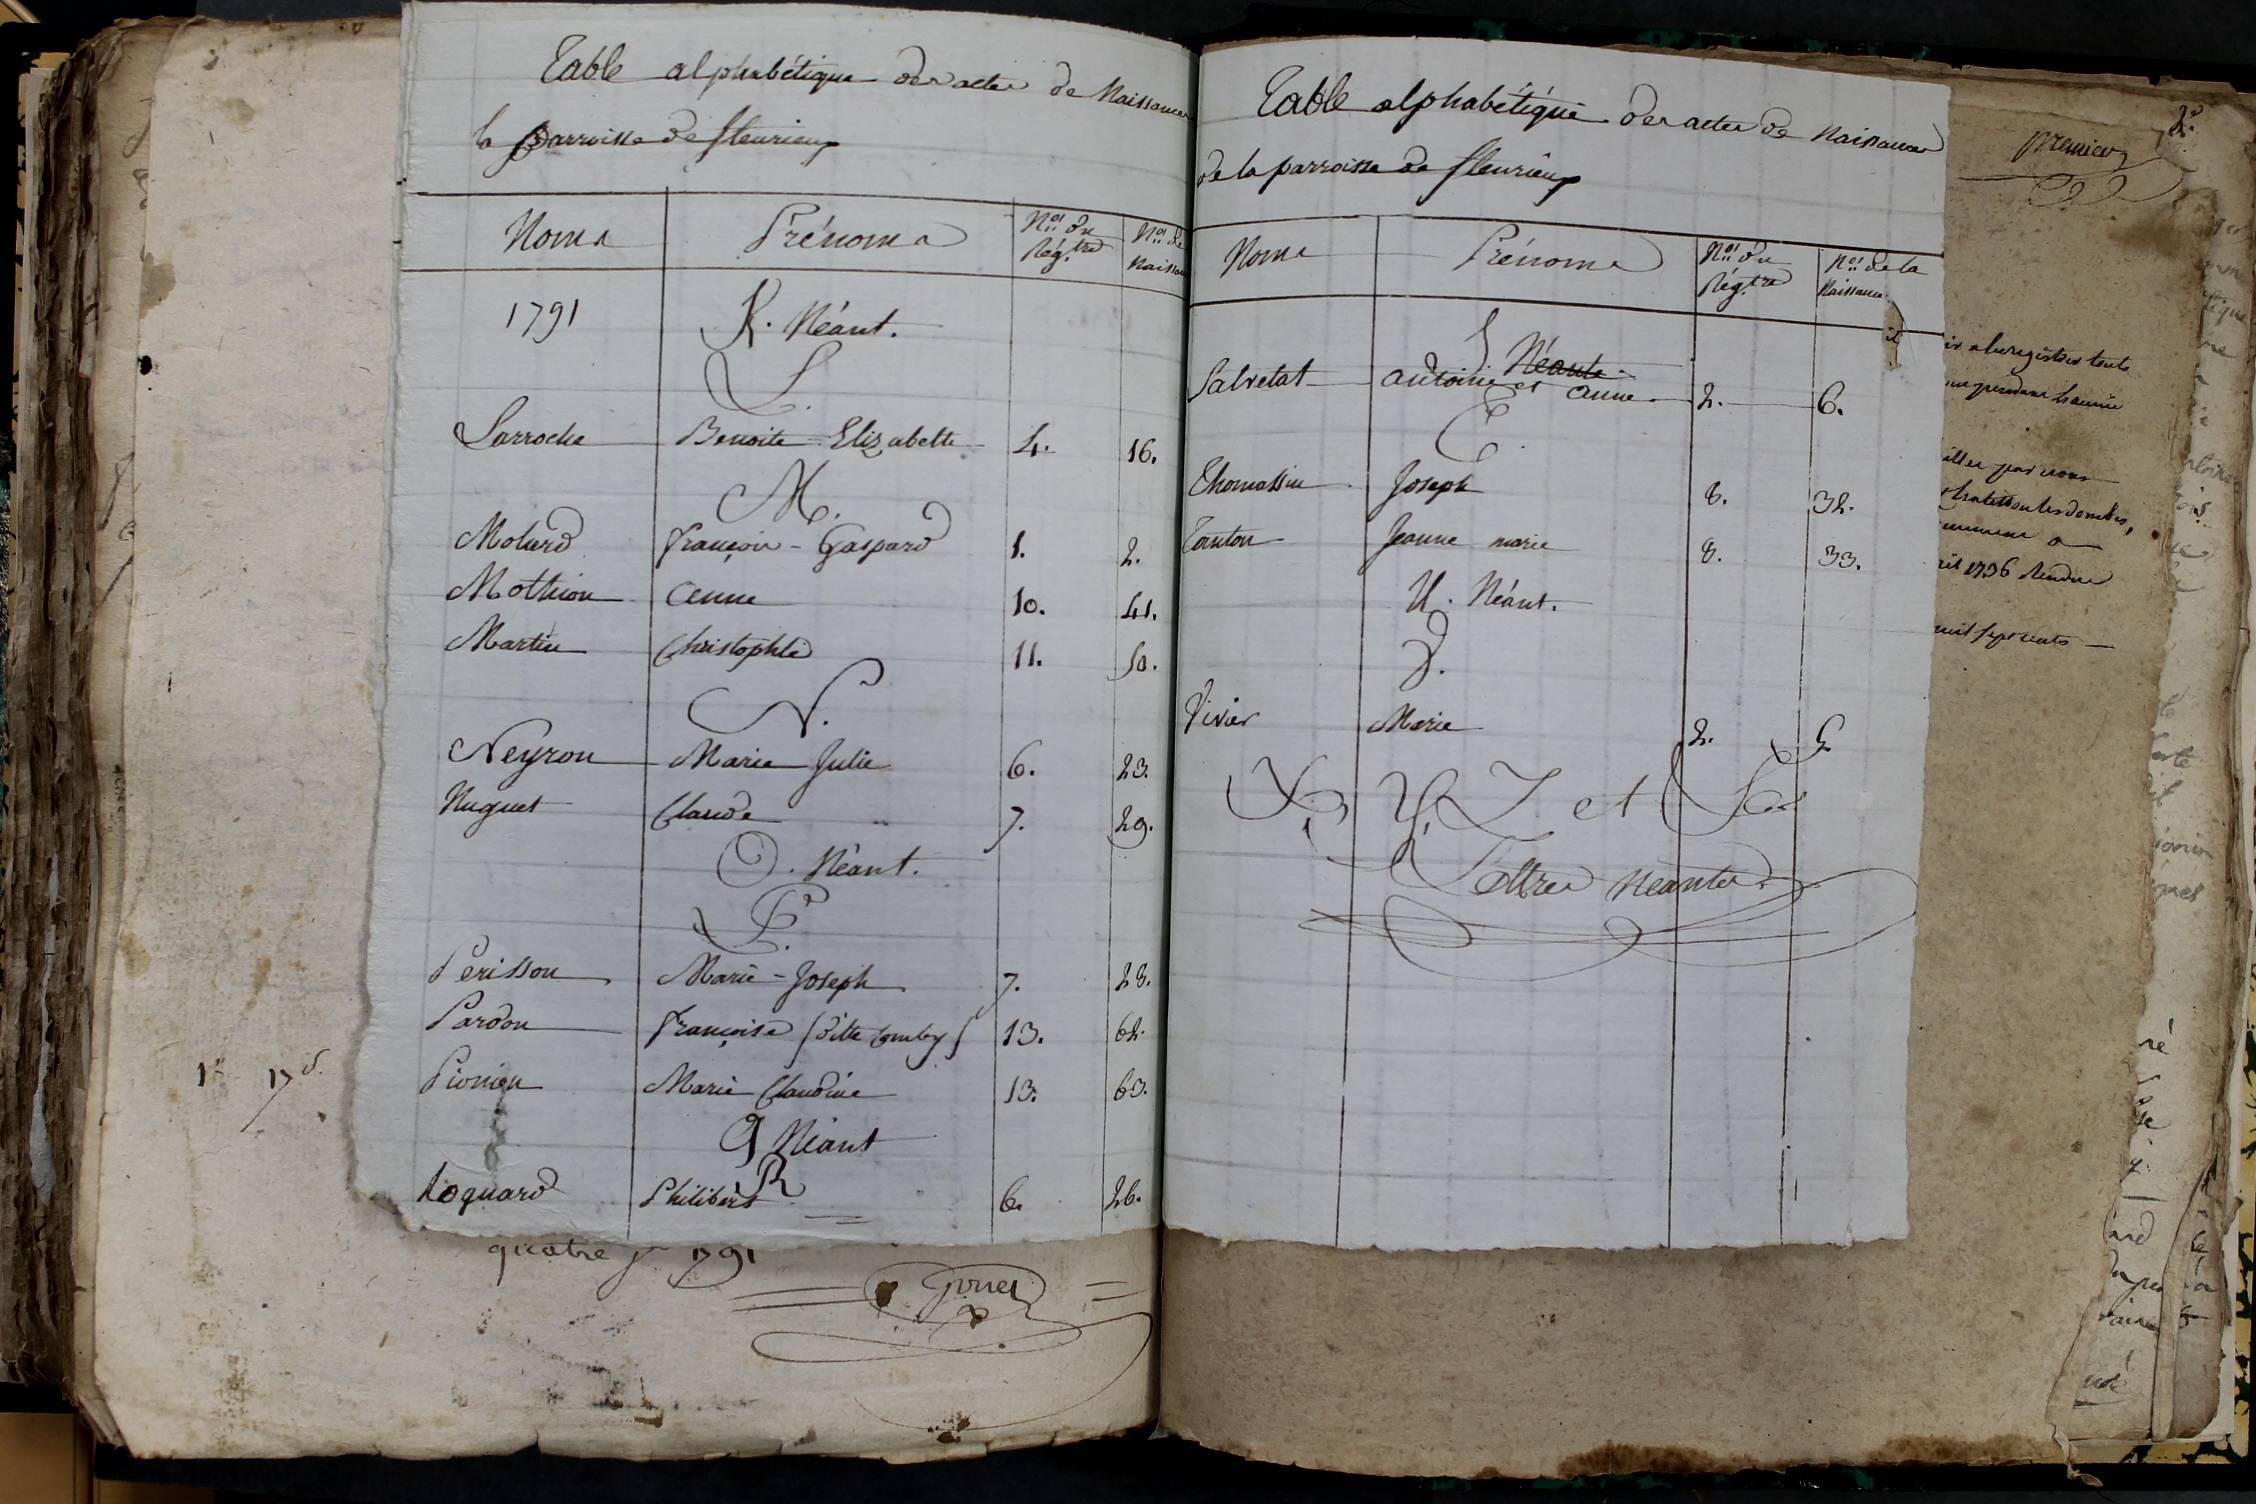 Table alphabétique des actes de Naissances
la parroisse de fleurieux
Noms Prénoms Nos. du Régtre Nos. de Naissan
1791 K. Néant.
L.
Larroche Benoite Elizabette 4. 16.
M.
Molard françois - Gaspard 1. 2.
Mothion anne 10. 41.
Martin Christophle 11. 50.
N.
Neyron Marie Julie 6. 23.
Nuguet Claude 7. 29.
O. Néant.
P.
Perisson Marie - Joseph 7. 28.
Pardon françoise (ditte 13. 62.
Pionien Marie Claudine 13. 63.
Q Néant
R
Roquard Philibert 6. 26.
quatre 1791
1r 17d.
Table alphabétique des actes de Naissances
de la parroisse de fleurieux
Noms Prénoms Nos. du Régtre Nos. de la Naissance
S Néante
Salvetat antoine et anne 2. 6.
T.
Thomassin Joseph 8. 32.
Tonton Jeanne marie 8. 33.
U. Néant.
V.
Vivier Marie 2. 5.
X, Y, Z et &c
Lettres Neantes
premier
2e
1736
sept cents